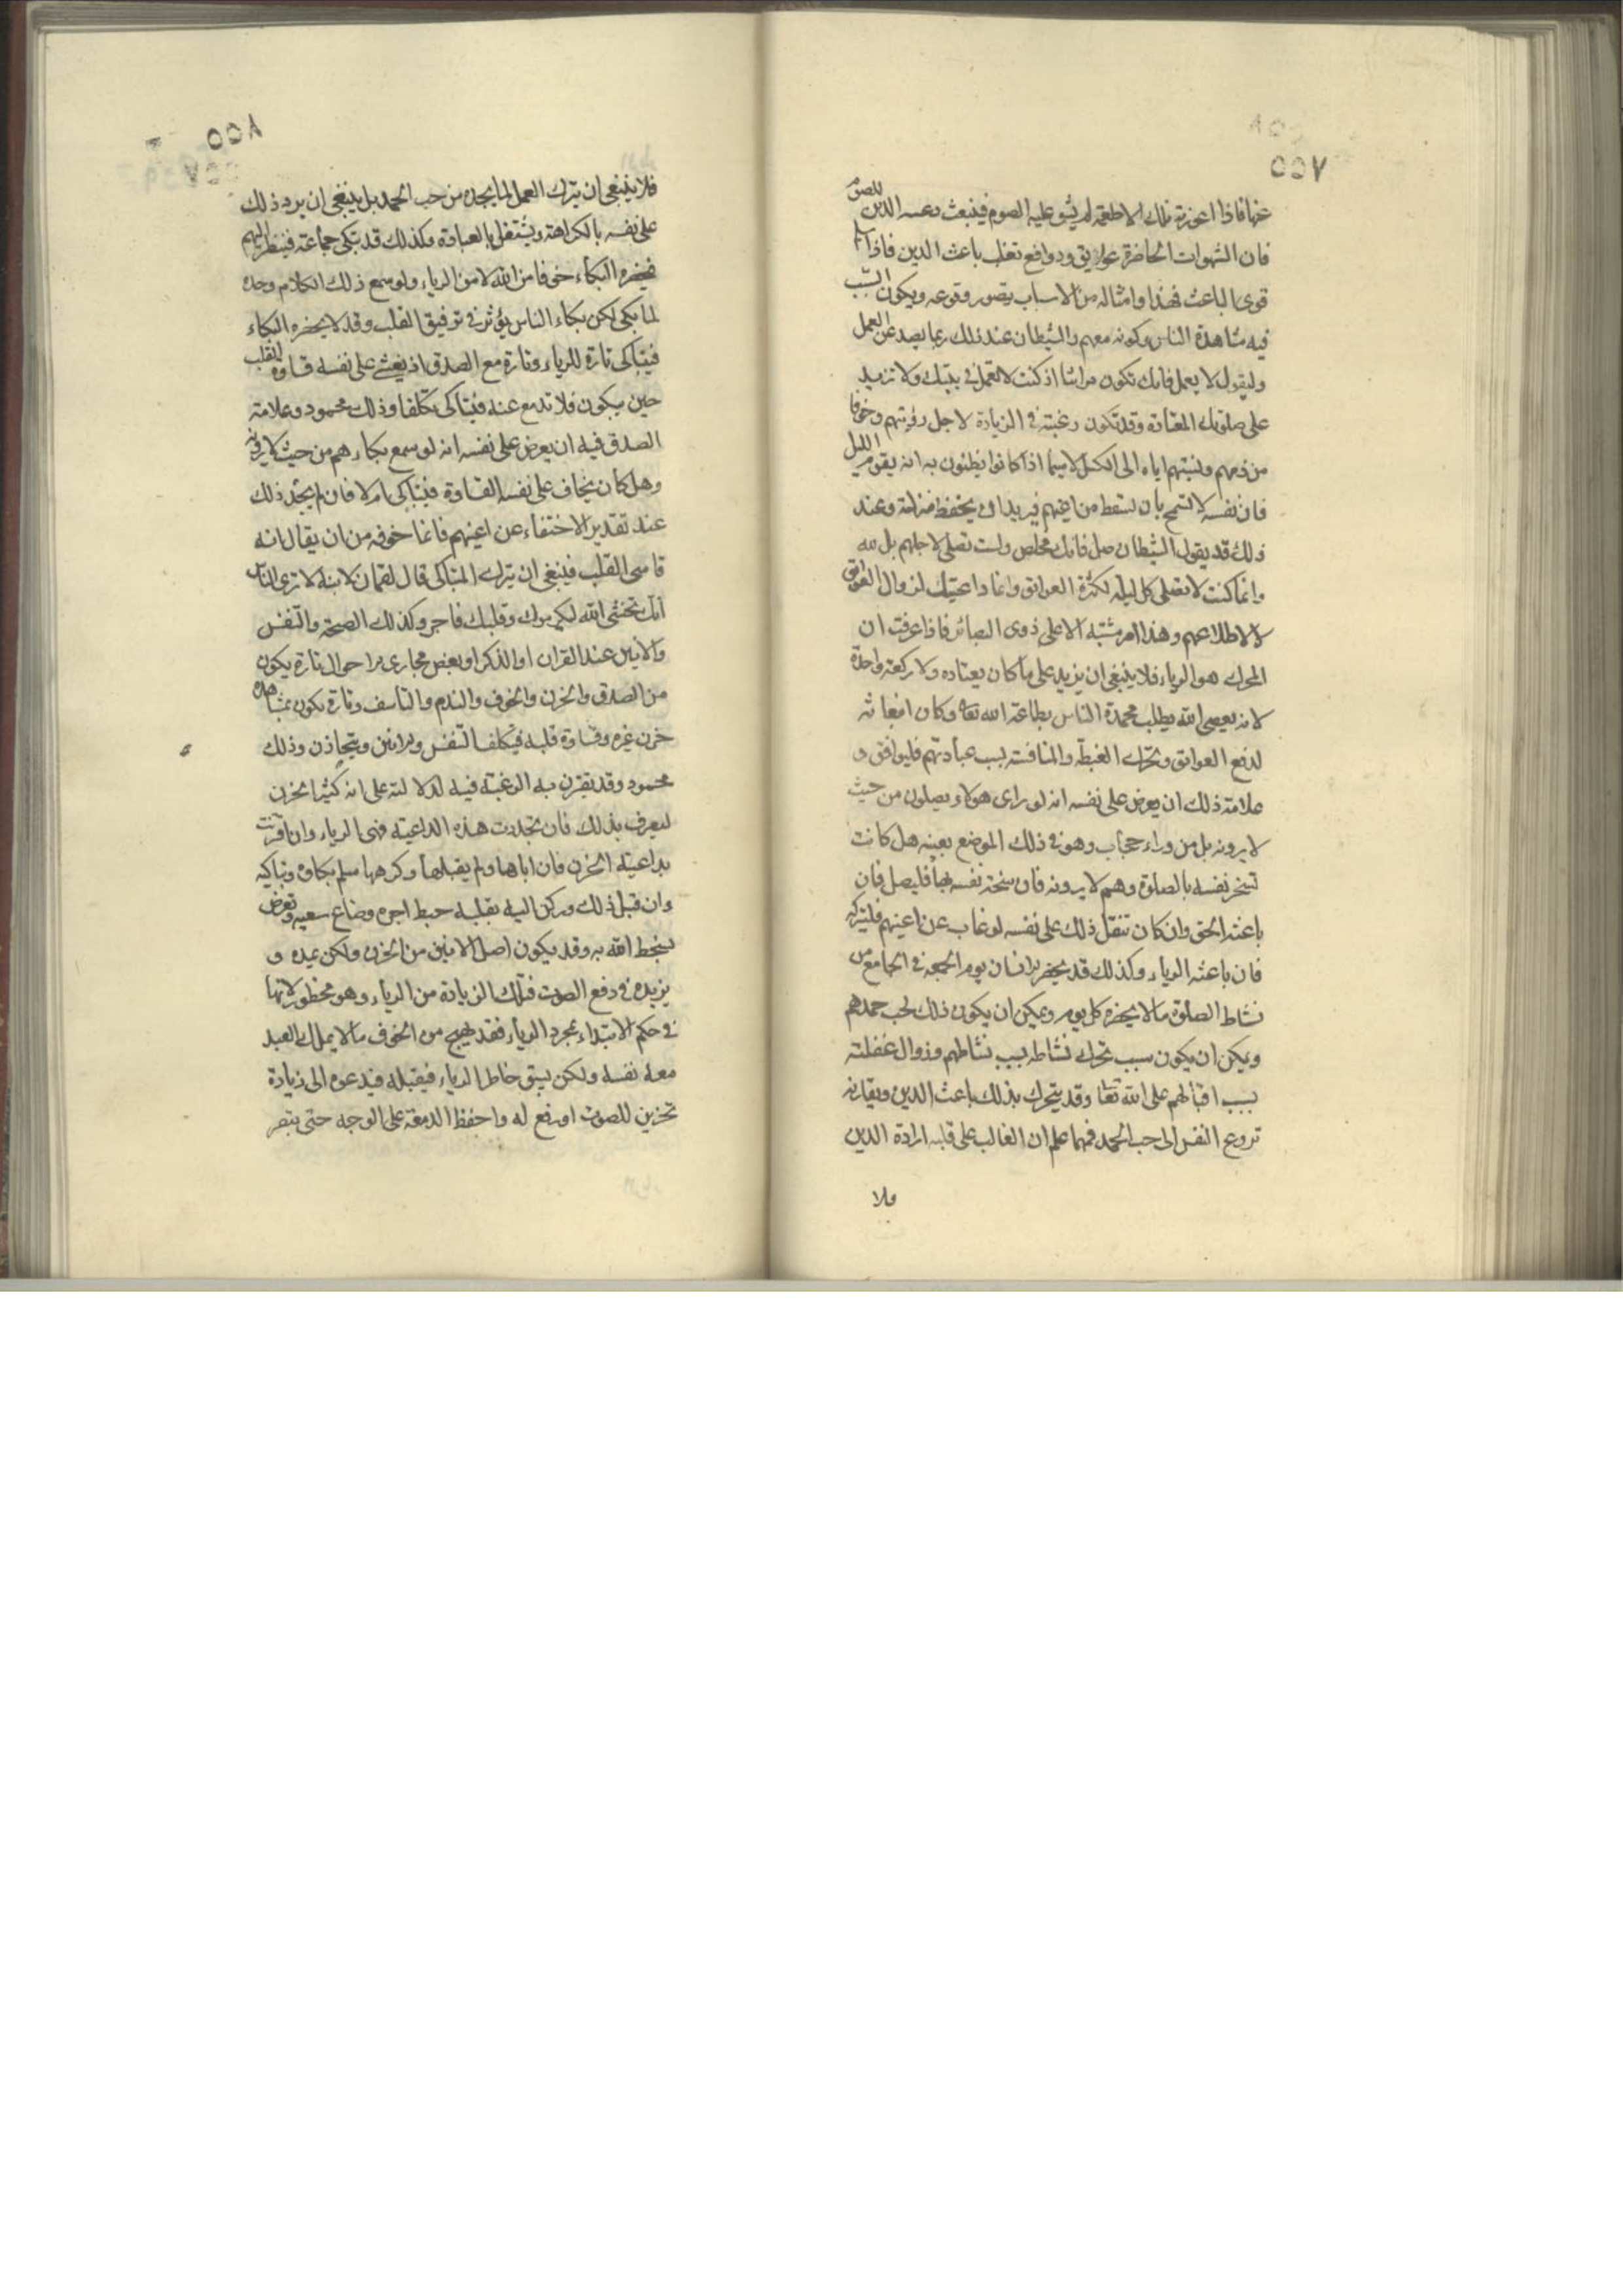 ٥٥٧
عنها فاذا اعوزته تلك الاطعمة لم يشق عليه الصوم فينبعث داعية الدين للصوم
فان الشهوات الحاضرة عوايق ودوافع تغلب باعث الدين فاذا سلم
قوى الباعث فهذا وامثاله من الاسباب يتصور وقوعه ويكون السبب
فيه مشاهدة الناس وكونه معهم والشيطان عند ذلك ربما يصد عن العمل
وليقول لا يعمل فانك تكون مرائيا اذ كنت لا تعمل في بيتك ولا تزيد
على صلوتك المعتادة وقد تكون رغبته في الزيادة لاجل رؤيتهم وخوفا
من ذمهم ونسبتهم اياه الى الكسل لا سيما اذا كانوا يظنون به انه يقوم الليل
فان نفسه لا تسمح بان تسقط من اعينهم فيريد ان يحفظ منزلته وعند
ذلك قد يقول الشيطان صل فانك مخلص ولست تصلي لاجلهم بل لله
وانما كنت لا تصلى كل ليلة لكثرة العوائق وانما داعيتك لزوال العوائق
لا لاطلاعهم وهذا امر مشتبه الا على ذوى البصائر فاذا عرفت ان
المحرك هو الرياء فلا ينبغي ان يزيد على ما كان يعتاده ولا ركعة واحدة
لانه يعصى الله بطلب محمدة الناس بطاعة الله تعا وكان انبعاثه
لدفع العوائق وتحرك الغبطة والمنافسة بسبب عبادتهم فليوافق و
علامة ذلك ان يعرض على نفسه انه لو راى هولاء يصلون من حيث
لا يرونه بل من وراء حجاب وهو في ذلك الموضع بعينه هل كانت
تسخو نفسه بالصلوة وهم لا يرونه فان سخت نفسه بها فليصل فان
باعثه الحق وان كان تثقل ذلك على نفسه لو غاب عن اعينهم فليتركه
فان باعثه الرياء وكذلك قد يحضر الانسان يوم الجمعة في الجامع من
نشاط الصلوة ما لا يحضره كل يوم ويمكن ان يكون ذلك لحب حمدهم
ويمكن ان يكون سبب تحرك نشاطه بسبب نشاطهم وزوال غفلته
بسبب اقبالهم على الله تعا وقد يتحرك بذلك باعث الدين ويقارنه
نزوع النفس الى حب الحمد فمهما علم ان الغالب على قلبه ارادة الدين
فلا
٥٥٨
فلا ينبغى ان يترك العمل لما يجده من حب الحمد بل ينبغى ان يرد ذلك
على نفسه بالكراهة ويشتغل بالعبادة وكذلك قد تبكى جماعة فينظر اليهم
فيحضره البكاء خوفا من الله لا من الرياء ولو سمع ذلك الكلام وحده
لما بكى لكن بكاء الناس يؤثر في ترقيق القلب وقد لا يحضره البكاء
فيتباكى تارة للرياء وتارة مع الصدق اذ يخشى على نفسه قساوة القلب
حين يبكون فلا تدمع عينه فيتباكى تكلفا وذلك محمود وعلامة
الصدق فيه ان يعرض على نفسه انه لو سمع بكاءهم من حيث لا يرونه
وهل كان يخاف على نفسه القساوة فيتباكى ام لا فان لم يجد ذلك
عند تقدير الاختفاء عن اعينهم فانما خوفه من ان يقال انه
قاسى القلب فينبغى ان يترك التباكى قال لقمان لابنه لا ترى الناس
انك تخشى الله ليكرموك وقلبك فاجر وكذلك الصيحة والتنفس
والانين عند القران او الذكر او بعض مجارى الاحوال تارة يكون
من الصدق والحزن والخوف والندم والتاسف وتارة يكون بمشاهدة
حزن غيره وقساوة قلبه فيتكلف التنفس والانين ويتحازن وذلك
محمود وقد يقترن به الرغبة فيه لدلالته على انه كثير الحزن
ليعرف بذلك فان تجددت هذه الداعية فهى الرياء وان اقترنت
بداعية الحزن فان اباها ولم يقبلها وكرهها سلم بكاؤه وتباكيه
وان قبل ذلك وركن اليه بقلبه حبط اجره وضاع سعيه وتعرض
لسخط الله به وقد يكون اصل الانين من الحزن ولكن يمده و
يزيده في رفع الصوت فتلك الزيادة من الرياء وهو محظور لانها
في حكم الابتداء بمجرد الرياء فقد يهيج من الخوف ما لا يملك العبد
معه نفسه ولكن يسبق خاطر الرياء فيقبله فيدعوه الى زيادة
تحزين للصوت او رفع له واحفظ الدمعة على الوجه حتى يبصر